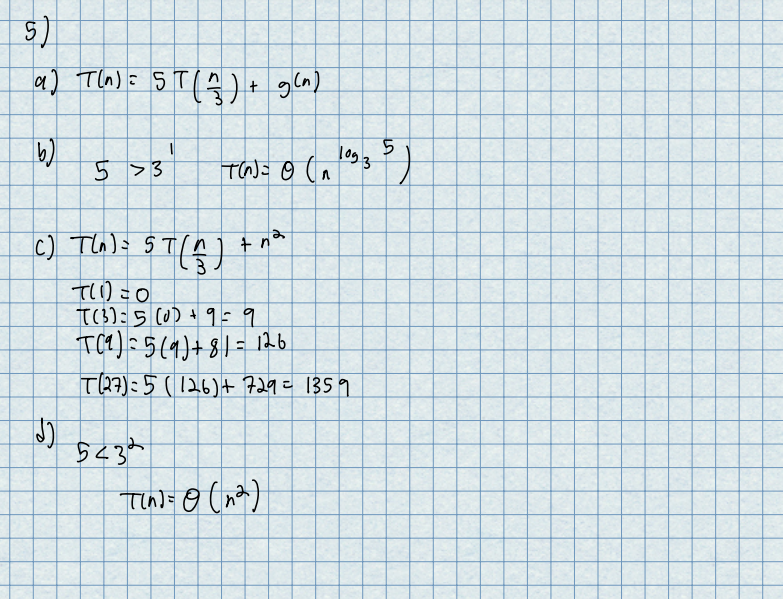 5)
a) T(n) = 5 T(n/3) + g(n)
b) 5 > 3^1 T(n) = θ(n^log_3 5)
c) T(n) = 5 T(n/3) + n^2
T(1) = 0
T(3) = 5 (0) + 9 = 9
T(9) = 5(9) + 81 = 126
T(27) = 5 (126) + 729 = 1359
d) 5 < 3^2
T(n) = θ(n^2)